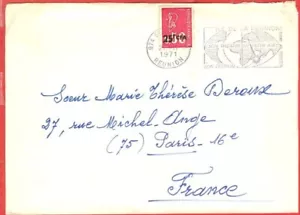 25F
1971
REUNION
Soeur Marie Thérèse Deroux
27, rue Michel-Ange
(75) Paris-16e
France